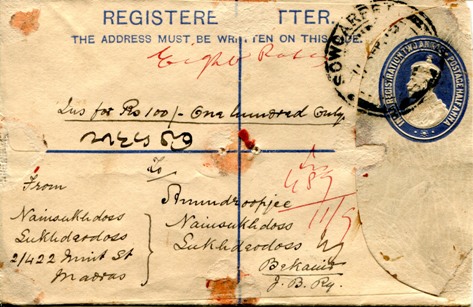 REGISTERE TTER.
THE ADDRESS MUST BE WRITTEN ON THIS SIDE.
SOWCARPET
INDIA REGISTRATION TWO ANNAS & POSTAGE HALF ANNA
Ins for Rs 100/- One hundred Only
To
From
Nainsukhdoss
Lukhderdoss
2/422 Mint St
Madras
Anundroopjee
Nainsukhdoss
Lukhderdoss
Bekanir
J. B. Ry.
487
11/9